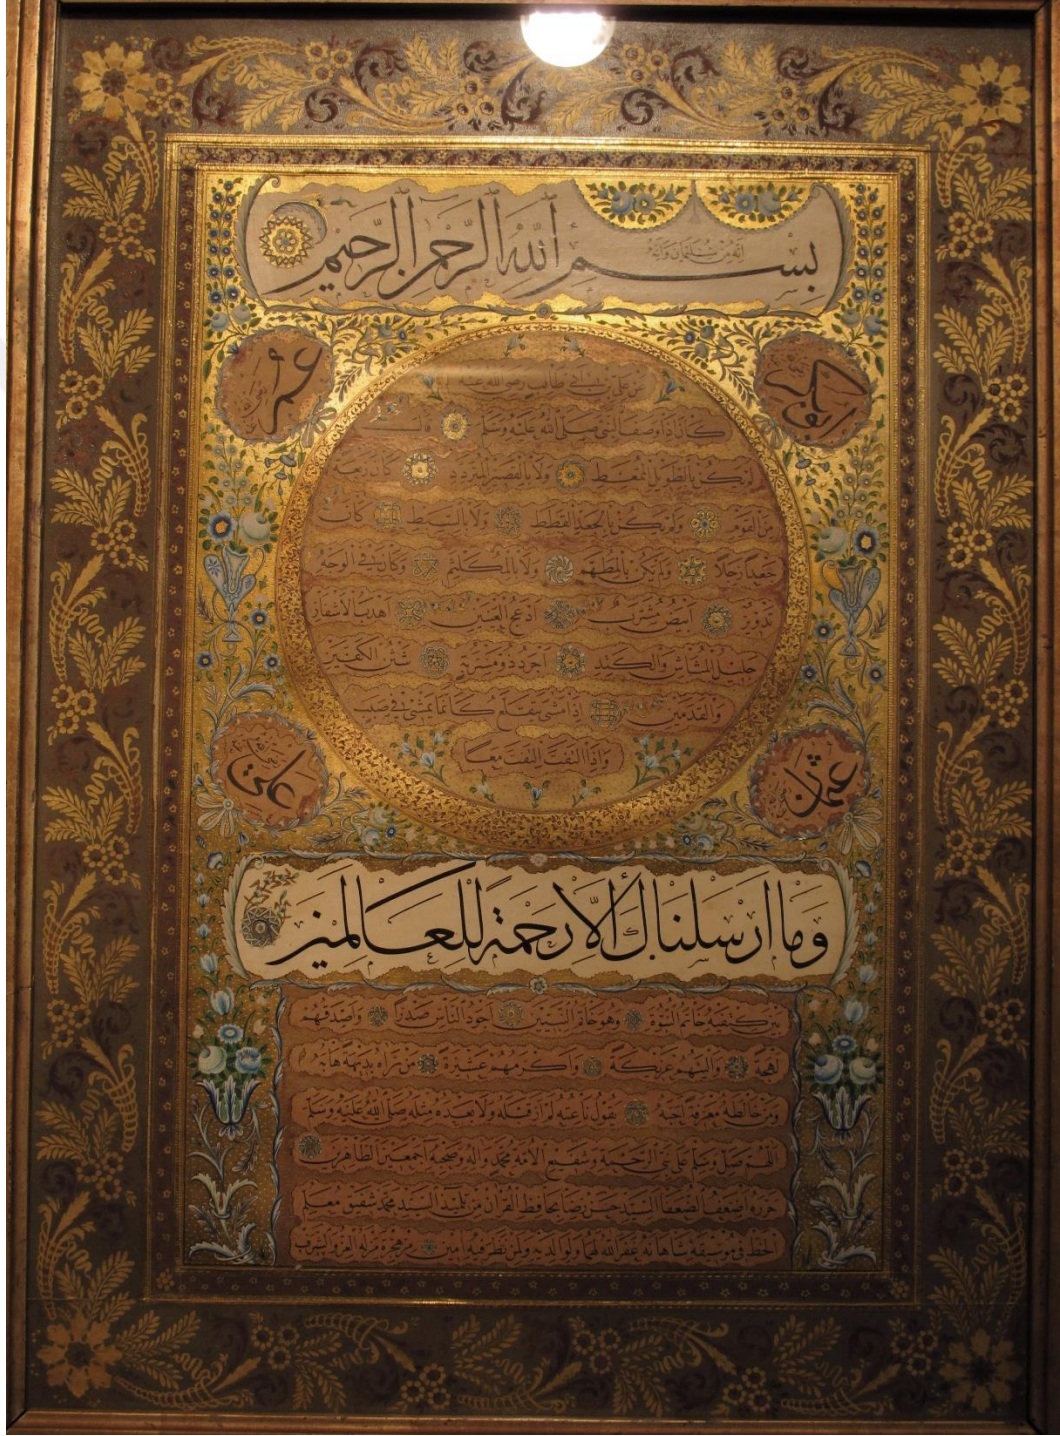 بسم الله الرحمن الرحيم
انه من سليمان وانه
ابو بكر
عمر
عن علي بن ابي طالب رضي الله عنه
كان اذا وصف النبي صلى الله عليه وسلم قال
لم يكن بالطويل الممغط ولا بالقصير المتردد كان ربعة
من القوم ولم يكن بالجعد القطط ولا بالسبط كان
جعدا رجلا ولم يكن بالمطهم ولا بالمكلثم وكان في الوجه
تدوير ابيض مشرب ادعج العينين اهدب الاشفار
جليل المشاش والكتد اجرد ذو مسربة شثن الكفين
والقدمين اذا مشى يتقلع كانما يمشي في صبب
واذا التفت التفت معا
عثمان
علي
وما ارسلناك الا رحمة للعالمين
بين كتفيه خاتم النبوة وهو خاتم النبيين اجود الناس صدرا واصدقهم
لهجة والينهم عريكة واكرمهم عشيرة من راه بديهة هابه
ومن خالطه معرفة احبه يقول ناعته لم ار قبله ولا بعده مثله صلى الله عليه وسلم
اللهم صل وسلم على نبي الرحمة وشفيع الامة محمد واله وصحبه اجمعين الطاهرين
حرره اضعف الضعفا السيد حسن رضا بحافظ القران من تلميذ السيد محمد شفيق معلم
الخط في موسقه شاهانه غفر الله لهما ولوالديه ولمن نظر فيه امين من هجرة من له العز والشرف